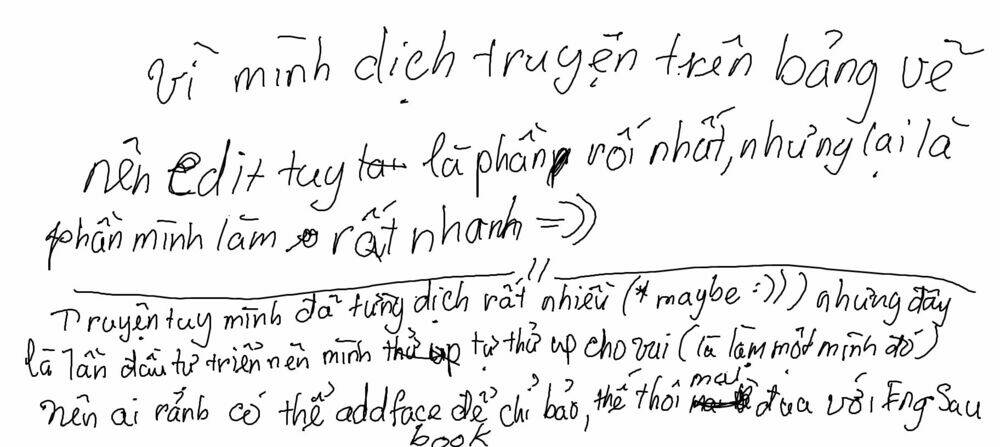 Vì mình dịch truyện trên bảng vẽ
nên edit tuy là phần rối nhất, nhưng lại là
phần mình làm rất nhanh =))
//
Truyện tuy mình đã từng dịch rất nhiều (*maybe :))) nhưng đây
là lần đầu tự triển nên mình tự thử up cho vui (là làm một mình đó)
nên ai rảnh có thể add facebook để chỉ bảo, thế thôi mai đua với Eng sau